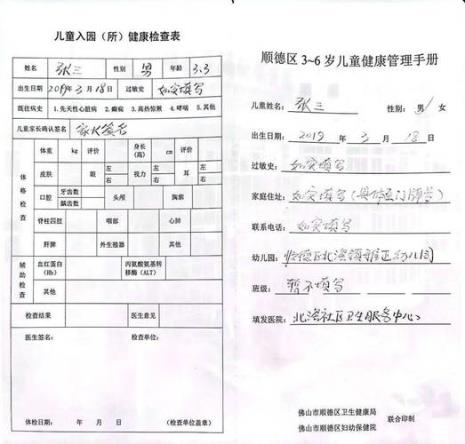 儿童入园（所）健康检查表
姓名 张三 性别 男 年龄 3.3
出生日期 2019年3月18日 过敏史 如实填写
既往病史 1.先天性心脏病 2.癫痫 3.高热惊厥 4.哮喘 5.其他
儿童家长确认签名 家长签名
体格检查
体重 kg 评价 身长（高） cm 评价
皮肤 眼 左 右 视力 左 右 耳 左 右
口腔 牙齿数 龋齿数 头颅 胸廓
脊柱四肢 咽部 心肺
肝脾 外生殖器 其他
辅助检查
血红蛋白（Hb） 丙氨酸氨基转移酶（ALT）
其他
检查结果 医生意见
医生签名： 检查单位：
体检日期： 年 月 日 （检查单位盖章）
顺德区3~6岁儿童健康管理手册
儿童姓名： 张三 性别： 男/女
出生日期： 2019年3月18日
过敏史： 如实填写
家庭住址： 如实填写（具体到门牌号）
联系电话： 如实填写
幼儿园： 顺德区北滘镇 幼儿园
班级： 暂不填写
填发医院： 北滘社区卫生服务中心
佛山市顺德区卫生健康局
佛山市顺德区妇幼保健院
联合印制